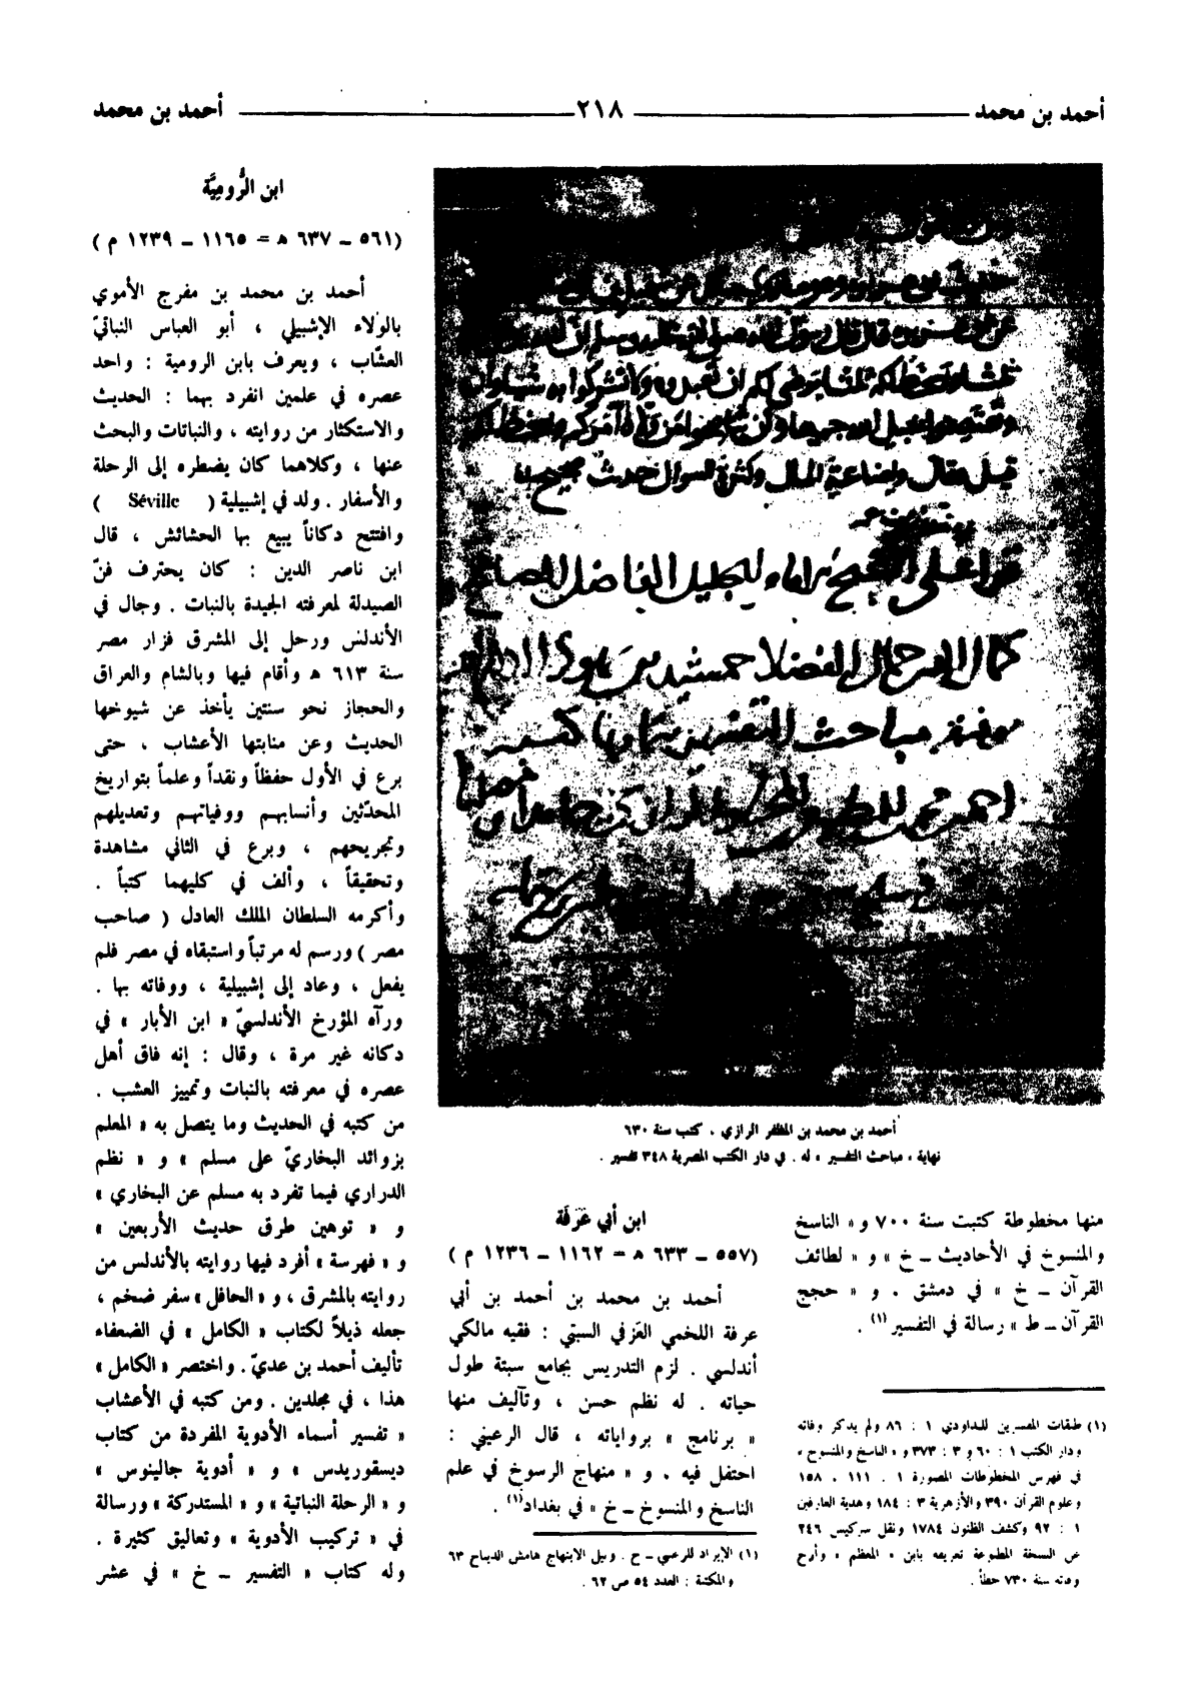 أحمد بن محمد ٢١٨ أحمد بن محمد
أحمد بن محمد بن المظفر الرازي . كتب سنة ٦٣٠
نهاية « مباحث التفسير » له . في دار الكتب المصرية ٣٤٨ تفسير .
منها مخطوطة كتبت سنة ٧٠٠ و « الناسخ
والمنسوخ في الأحاديث ـ خ » و « لطائف
القرآن ـ خ » في دمشق . و « حجج
القرآن ـ ط » رسالة في التفسير (١) .
(١) طبقات المفسرين للداودي ١ : ٨٦ ولم يذكر وفاته
ودار الكتب ١ : ٦٠ و ٣ : ٣٧٣ و « الناسخ والمنسوخ »
في فهرس المخطوطات المصورة ١ . ١١١ . ١٥٨
وعلوم القرآن ٣٩٠ والأزهرية ٣ : ١٨٤ وهدية العارفين
١ : ٩٢ وكشف الظنون ١٧٨٤ ونقل سركيس ٢٤٦
عن النسخة المطبوعة تعريفه بابن « المعظم » وأرخ
وفاته سنة ٧٣٠ خطأ .
ابن أبي عَزَفَة
(٥٥٧ ـ ٦٣٣ ه = ١١٦٢ ـ ١٢٣٦ م )
أحمد بن محمد بن أحمد بن أبي
عزفة اللخمي العَزفي السبتي : فقيه مالكي
أندلسي . لزم التدريس بجامع سبتة طول
حياته . له نظم حسن ، وتآليف منها
« برنامج » برواياته ، قال الرعيني :
احتفل فيه . و « منهاج الرسوخ في علم
الناسخ والمنسوخ ـ خ » في بغداد(١) .
(١) الإيراد للرعيني ـ خ . ونيل الابتهاج هامش الديباج ٦٣
والمكتبة : العدد ٥٤ ص ٦٢ .
ابن الرُّوميَّة
(٥٦١ ـ ٦٣٧ ه = ١١٦٥ ـ ١٢٣٩ م )
أحمد بن محمد بن مفرج الأموي
بالولاء الإشبيلي ، أبو العباس النباتيّ
العشّاب ، ويعرف بابن الرومية : واحد
عصره في علمين انفرد بهما : الحديث
والاستكثار من روايته ، والنباتات والبحث
عنها ، وكلاهما كان يضطره إلى الرحلة
والأسفار . ولد في إشبيلية ( Séville )
وافتتح دكاناً يبيع بها الحشائش ، قال
ابن ناصر الدين : كان يحترف فنّ
الصيدلة لمعرفته الجيدة بالنبات . وجال في
الأندلس ورحل إلى المشرق فزار مصر
سنة ٦١٣ ه وأقام فيها وبالشام والعراق
والحجاز نحو سنتين يأخذ عن شيوخها
الحديث وعن منابتها الأعشاب ، حتى
برع في الأول حفظاً ونقداً وعلماً بتواريخ
المحدّثين وأنسابهم ووفياتهم وتعديلهم
وتجريحهم ، وبرع في الثاني مشاهدة
وتحقيقاً ، وألف في كليهما كتباً .
وأكرمه السلطان الملك العادل ( صاحب
مصر ) ورسم له مرتباً واستبقاه في مصر فلم
يفعل ، وعاد إلى إشبيلية ، ووفاته بها .
ورآه المؤرخ الأندلسيّ « ابن الأبار » في
دكانه غير مرة ، وقال : إنه فاق أهل
عصره في معرفته بالنبات وتمييز العشب .
من كتبه في الحديث وما يتصل به « المعلم
بزوائد البخاريّ على مسلم » و « نظم
الدراري فيما تفرد به مسلم عن البخاري »
و « توهين طرق حديث الأربعين »
و « فهرسة » أفرد فيها روايته بالأندلس من
روايته بالمشرق ، و « الحافل » سفر ضخم ،
جعله ذيلاً لكتاب « الكامل » في الضعفاء
تأليف أحمد بن عديّ . واختصر « الكامل »
هذا ، في مجلدين . ومن كتبه في الأعشاب
« تفسير أسماء الأدوية المفردة من كتاب
ديسقوريدس » و « أدوية جالينوس »
و « الرحلة النباتية » و « المستدركة » ورسالة
في « تركيب الأدوية » وتعاليق كثيرة .
وله كتاب « التفسير ـ خ » في عشر